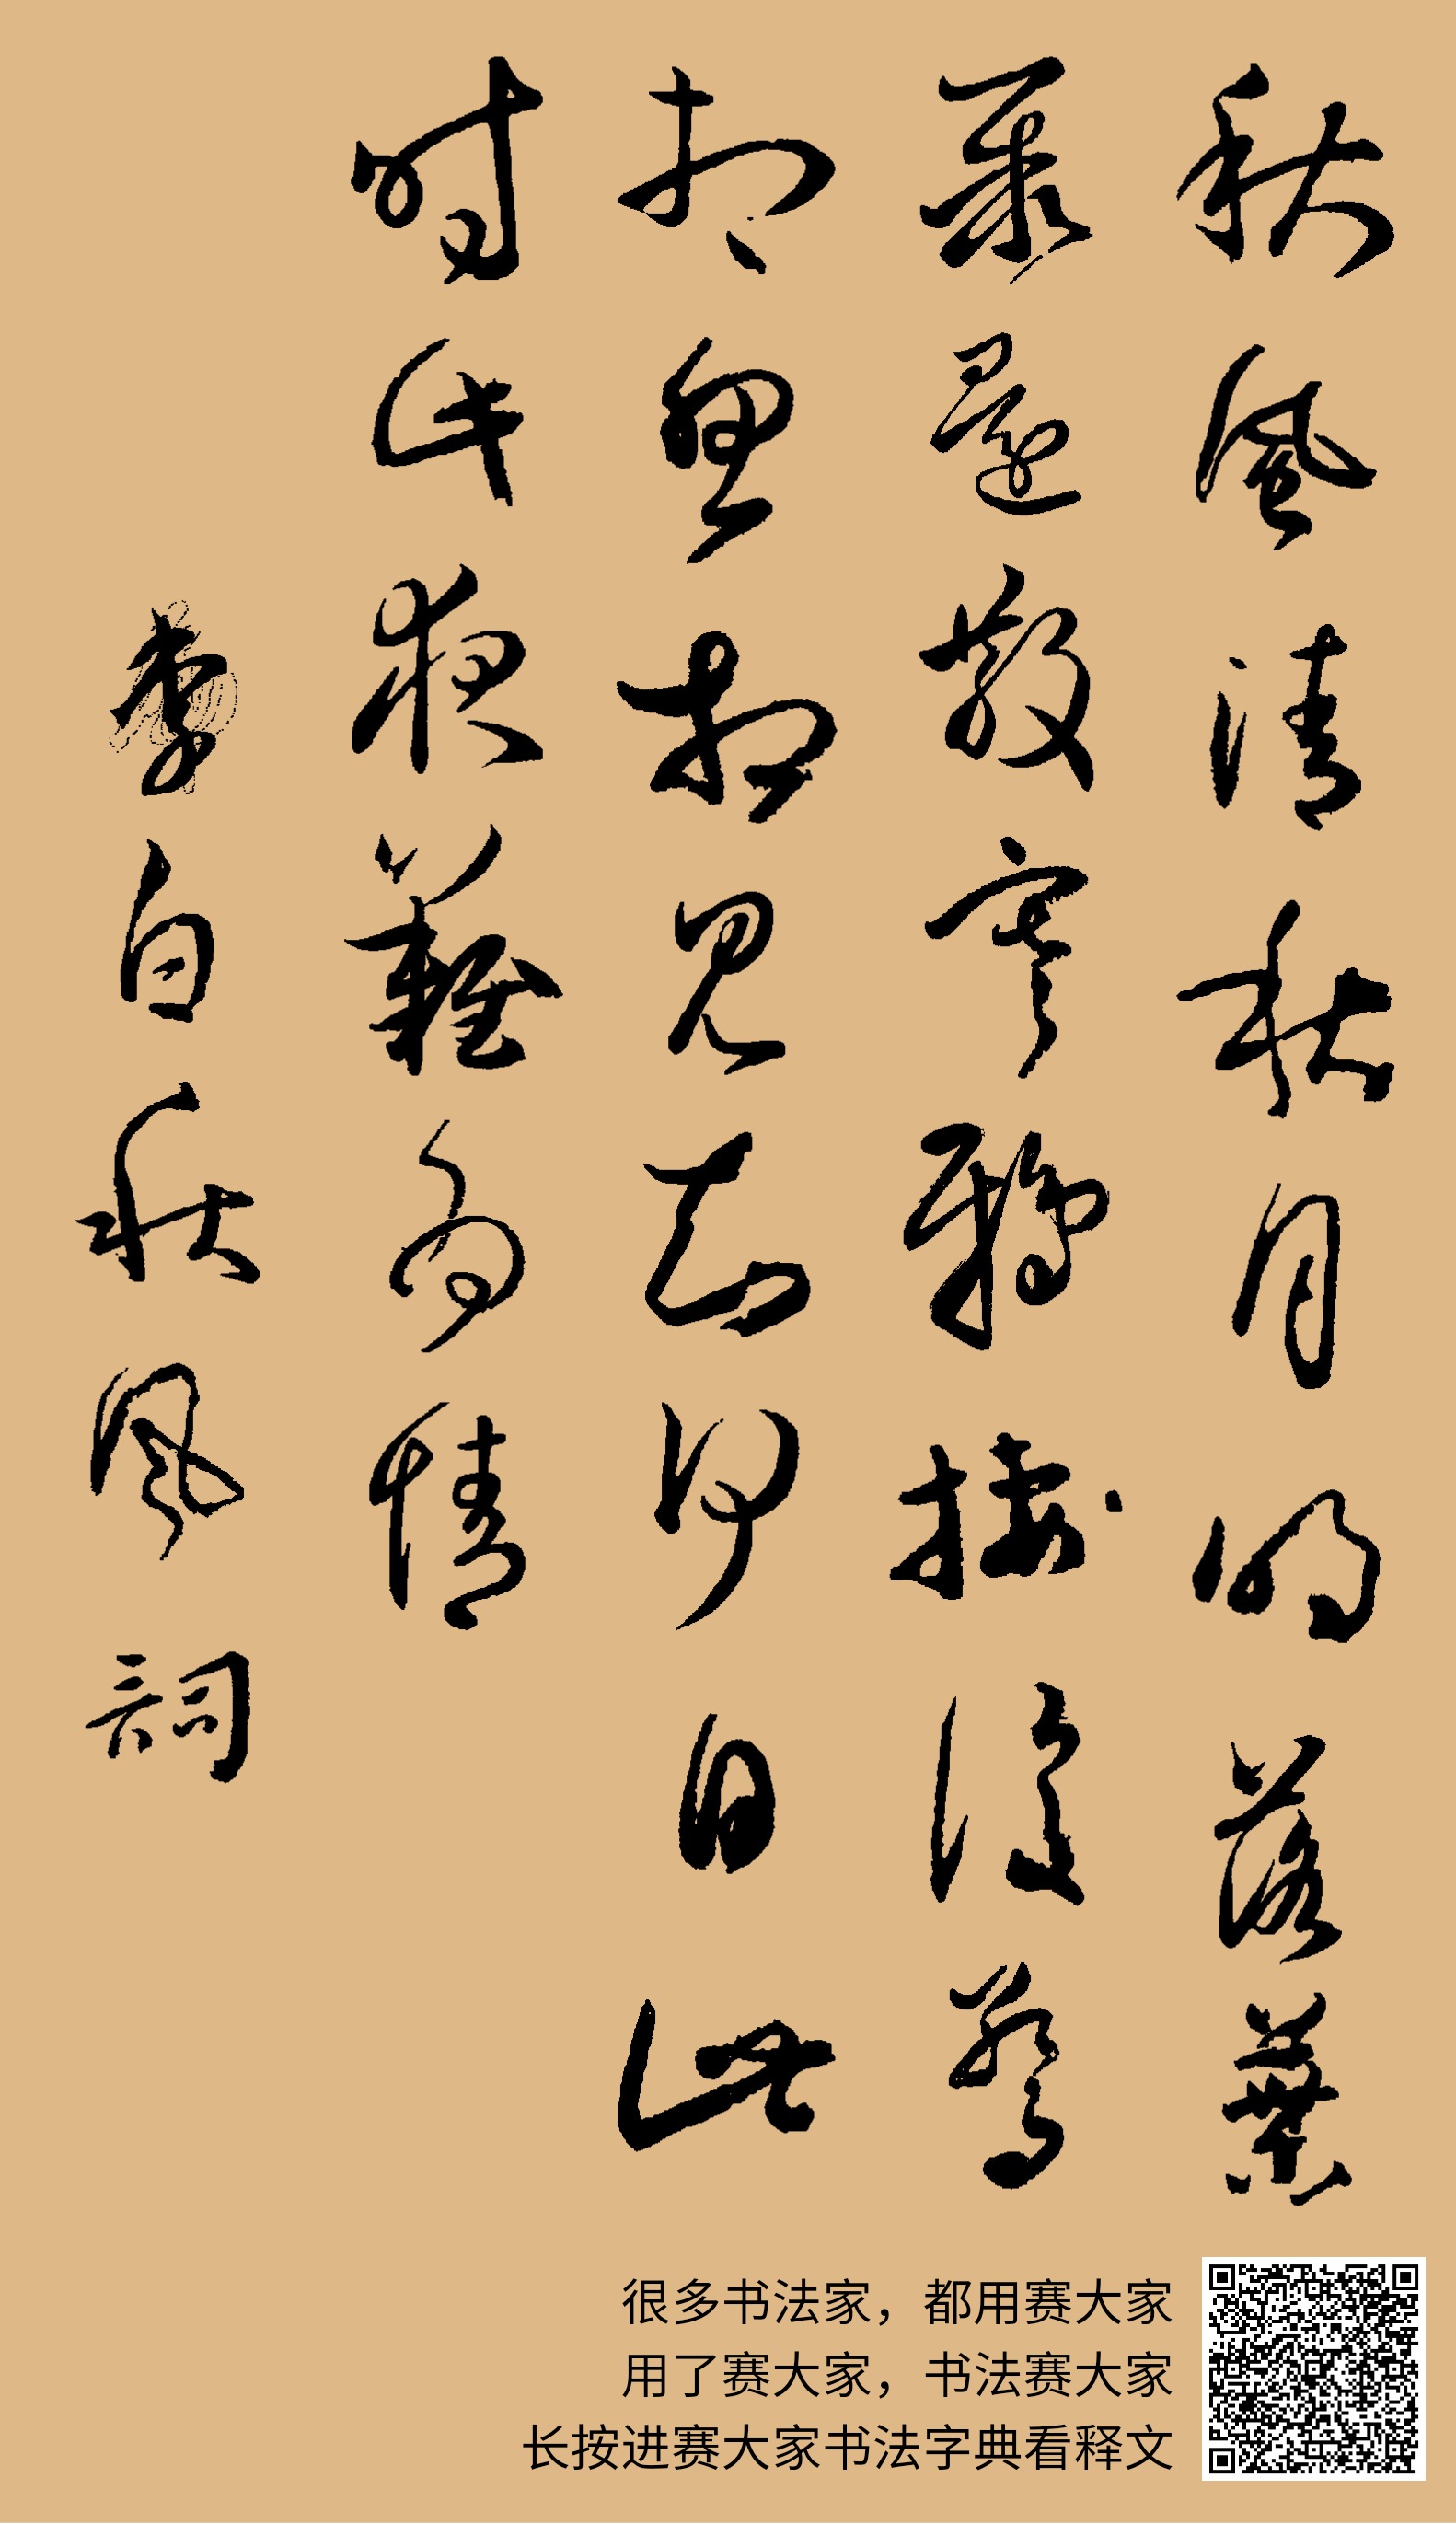 秋風清秋月明落葉
聚還散寒鴉棲復驚
相思相見知何日此
時此夜難為情
李白秋風詞
很多书法家，都用赛大家
用了赛大家，书法赛大家
长按进赛大家书法字典看释文